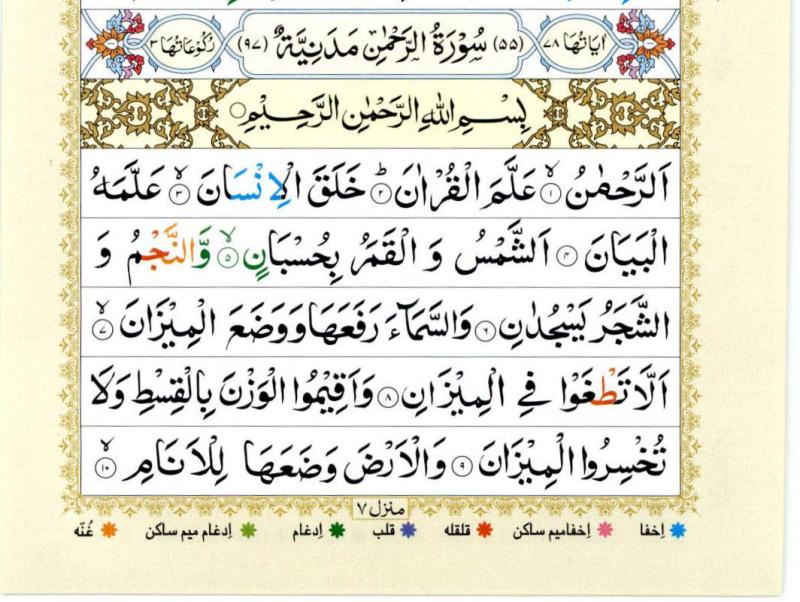 اٰيَاتُهَا ٧٨ (٥٥) سُوْرَةُ الرَّحْمٰنِ مَدَنِيَّةٌ (٩٧) رُكُوْعَاتُهَا ٣
بِسْمِ اللّٰهِ الرَّحْمٰنِ الرَّحِيْمِ
اَلرَّحْمٰنُ ۙ‏﴿١﴾ عَلَّمَ الْقُرْاٰنَ ؕ‏﴿٢﴾ خَلَقَ الْاِنْسَانَ ۙ‏﴿٣﴾ عَلَّمَهُ
الْبَيَانَ ﴿٤﴾ اَلشَّمْسُ وَ الْقَمَرُ بِحُسْبَانٍ ۙ‏﴿٥﴾ وَّالنَّجْمُ وَ
الشَّجَرُ يَسْجُدٰنِ ﴿٦﴾ وَالسَّمَآءَ رَفَعَهَا وَوَضَعَ الْمِيْزَانَ ۙ‏﴿٧﴾
اَلَّا تَطْغَوْا فِي الْمِيْزَانِ ﴿٨﴾ وَاَقِيْمُوا الْوَزْنَ بِالْقِسْطِ وَلَا
تُخْسِرُوا الْمِيْزَانَ ﴿٩﴾ وَالْاَرْضَ وَضَعَهَا لِلْاَنَامِ ۙ‏﴿١٠﴾
منزل ٧
اِخفا اِخفامیم ساکن قلقله قلب اِدغام اِدغام میم ساکن غُنّه